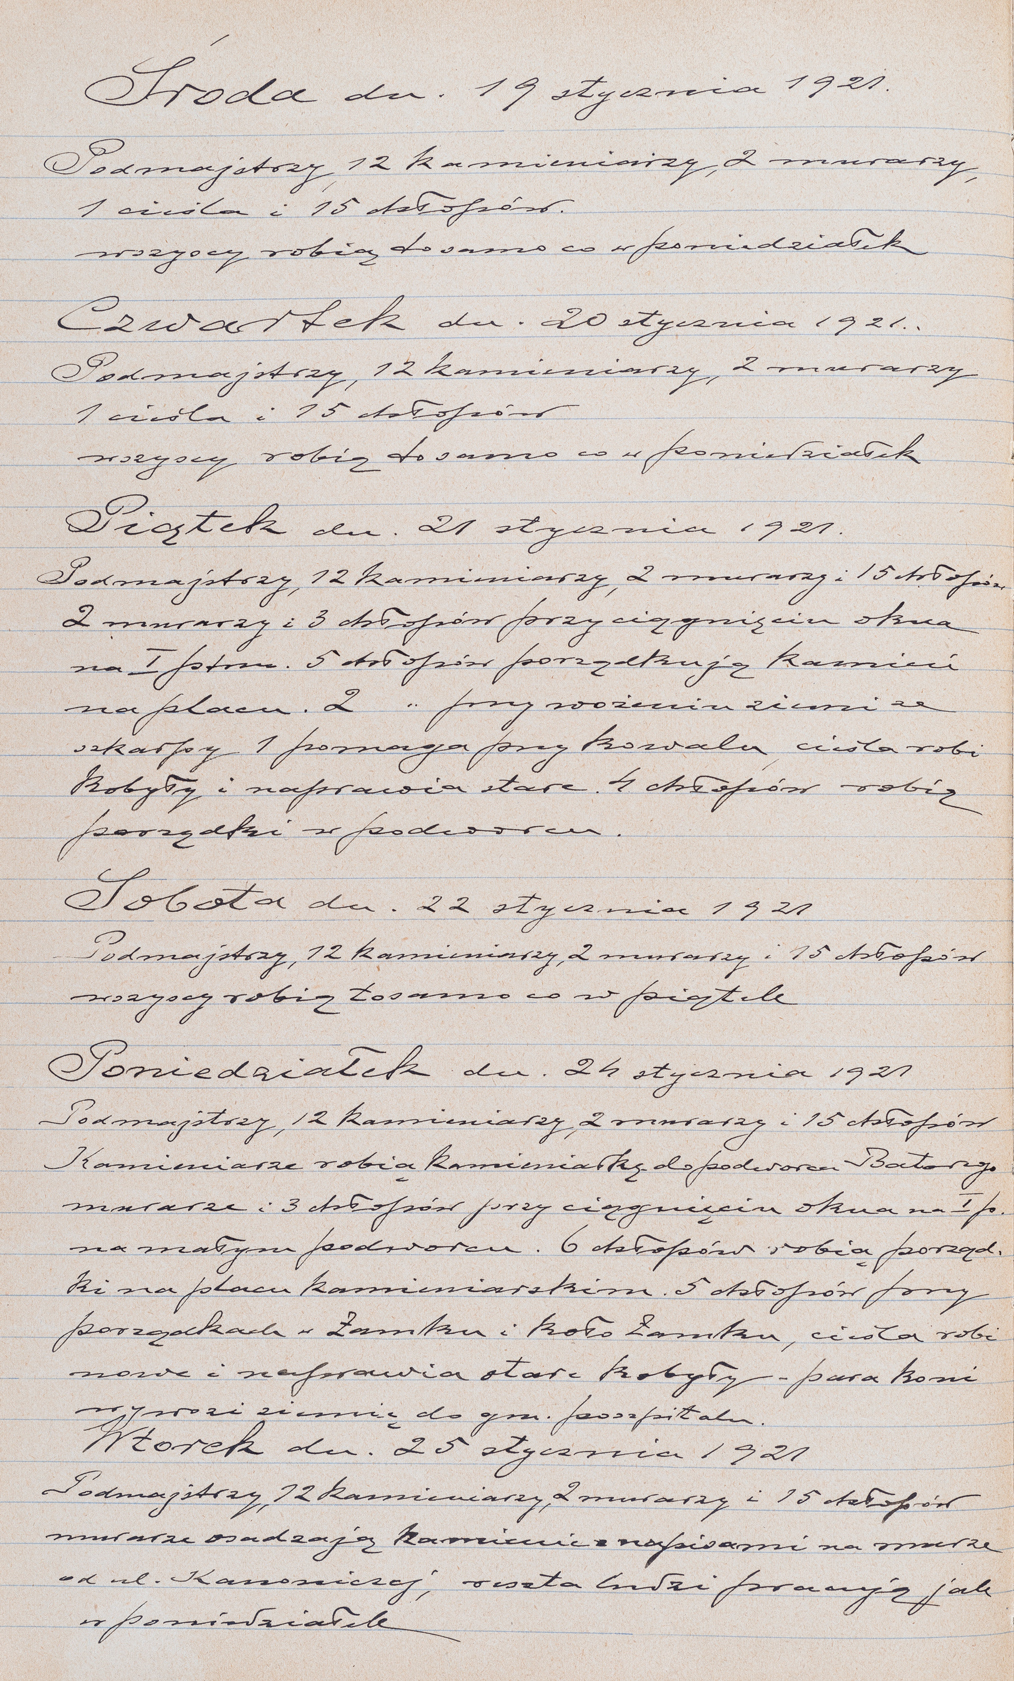 Środa dn. 19 stycznia 1921.
Podmajstrzy, 12 kamieniarzy, 2 murarzy,
1 cieśla i 15 chłopów.
wszyscy robią to samo co w poniedziałek
Czwartek dn. 20 stycznia 1921.
Podmajstrzy, 12 kamieniarzy, 2 murarzy
1 cieśla i 15 chłopów
wszyscy robią to samo co w poniedziałek
Piątek dn. 21 stycznia 1921.
Podmajstrzy, 12 kamieniarzy, 2 murarzy i 15 chłopów
2 murarzy i 3 chłopów przy ciągnięciu okna
na I ptrze. 5 chłopów porządkują kamień
na placu. 2 " przy wożeniu ziemi ze
szkarpy 1 pomaga przy kowalu, cieśla robi
kobyły i naprawia stare. 4 chłopów robią
porządki w podworcu.
Sobota dn. 22 stycznia 1921
Podmajstrzy, 12 kamieniarzy, 2 murarzy i 15 chłopów
wszyscy robią tosamo co w piątek
Poniedziałek dn. 24 stycznia 1921
Podmajstrzy, 12 kamieniarzy, 2 murarzy i 15 chłopów
Kamieniarze robią kamieniarkę do podworca Batorego
murarze i 3 chłopów przy ciągnięciu okna na I p.
na małym podworcu. 6 chłopów robią porząd-
ki na placu kamieniarskim. 5 chłopów przy
porządkach w Zamku i koło Zamku, cieśla robi
nowe i naprawia stare kobyły - para koni
wywozi ziemię do gm. poszpitalu.
Wtorek dn. 25 stycznia 1921
Podmajstrzy, 12 kamieniarzy, 2 murarzy i 15 chłopów
murarze osadzają kamienie z napisami na murze
od ul. Kanoniczej, reszta ludzi pracują jak
w poniedziałek